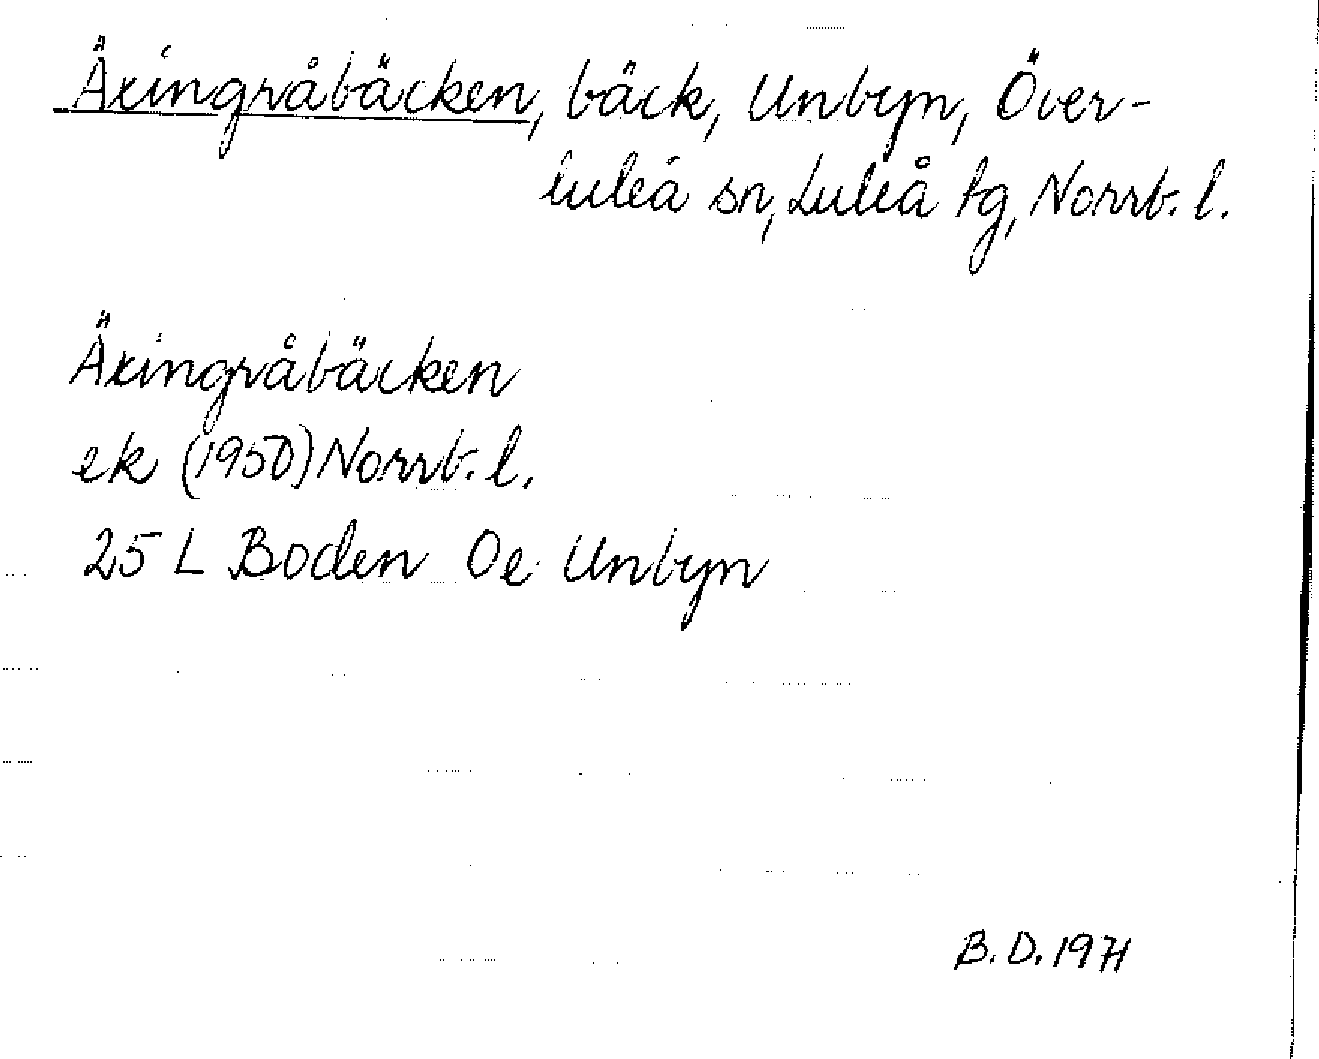 Äxingråbäcken, bäck, Unbyn, Över-
luleå sn, Luleå tg, Norrb. l.
Äxingråbäcken
ek (1950) Norrb. l.
25 L Boden Oe Unbyn
B. D. 1971